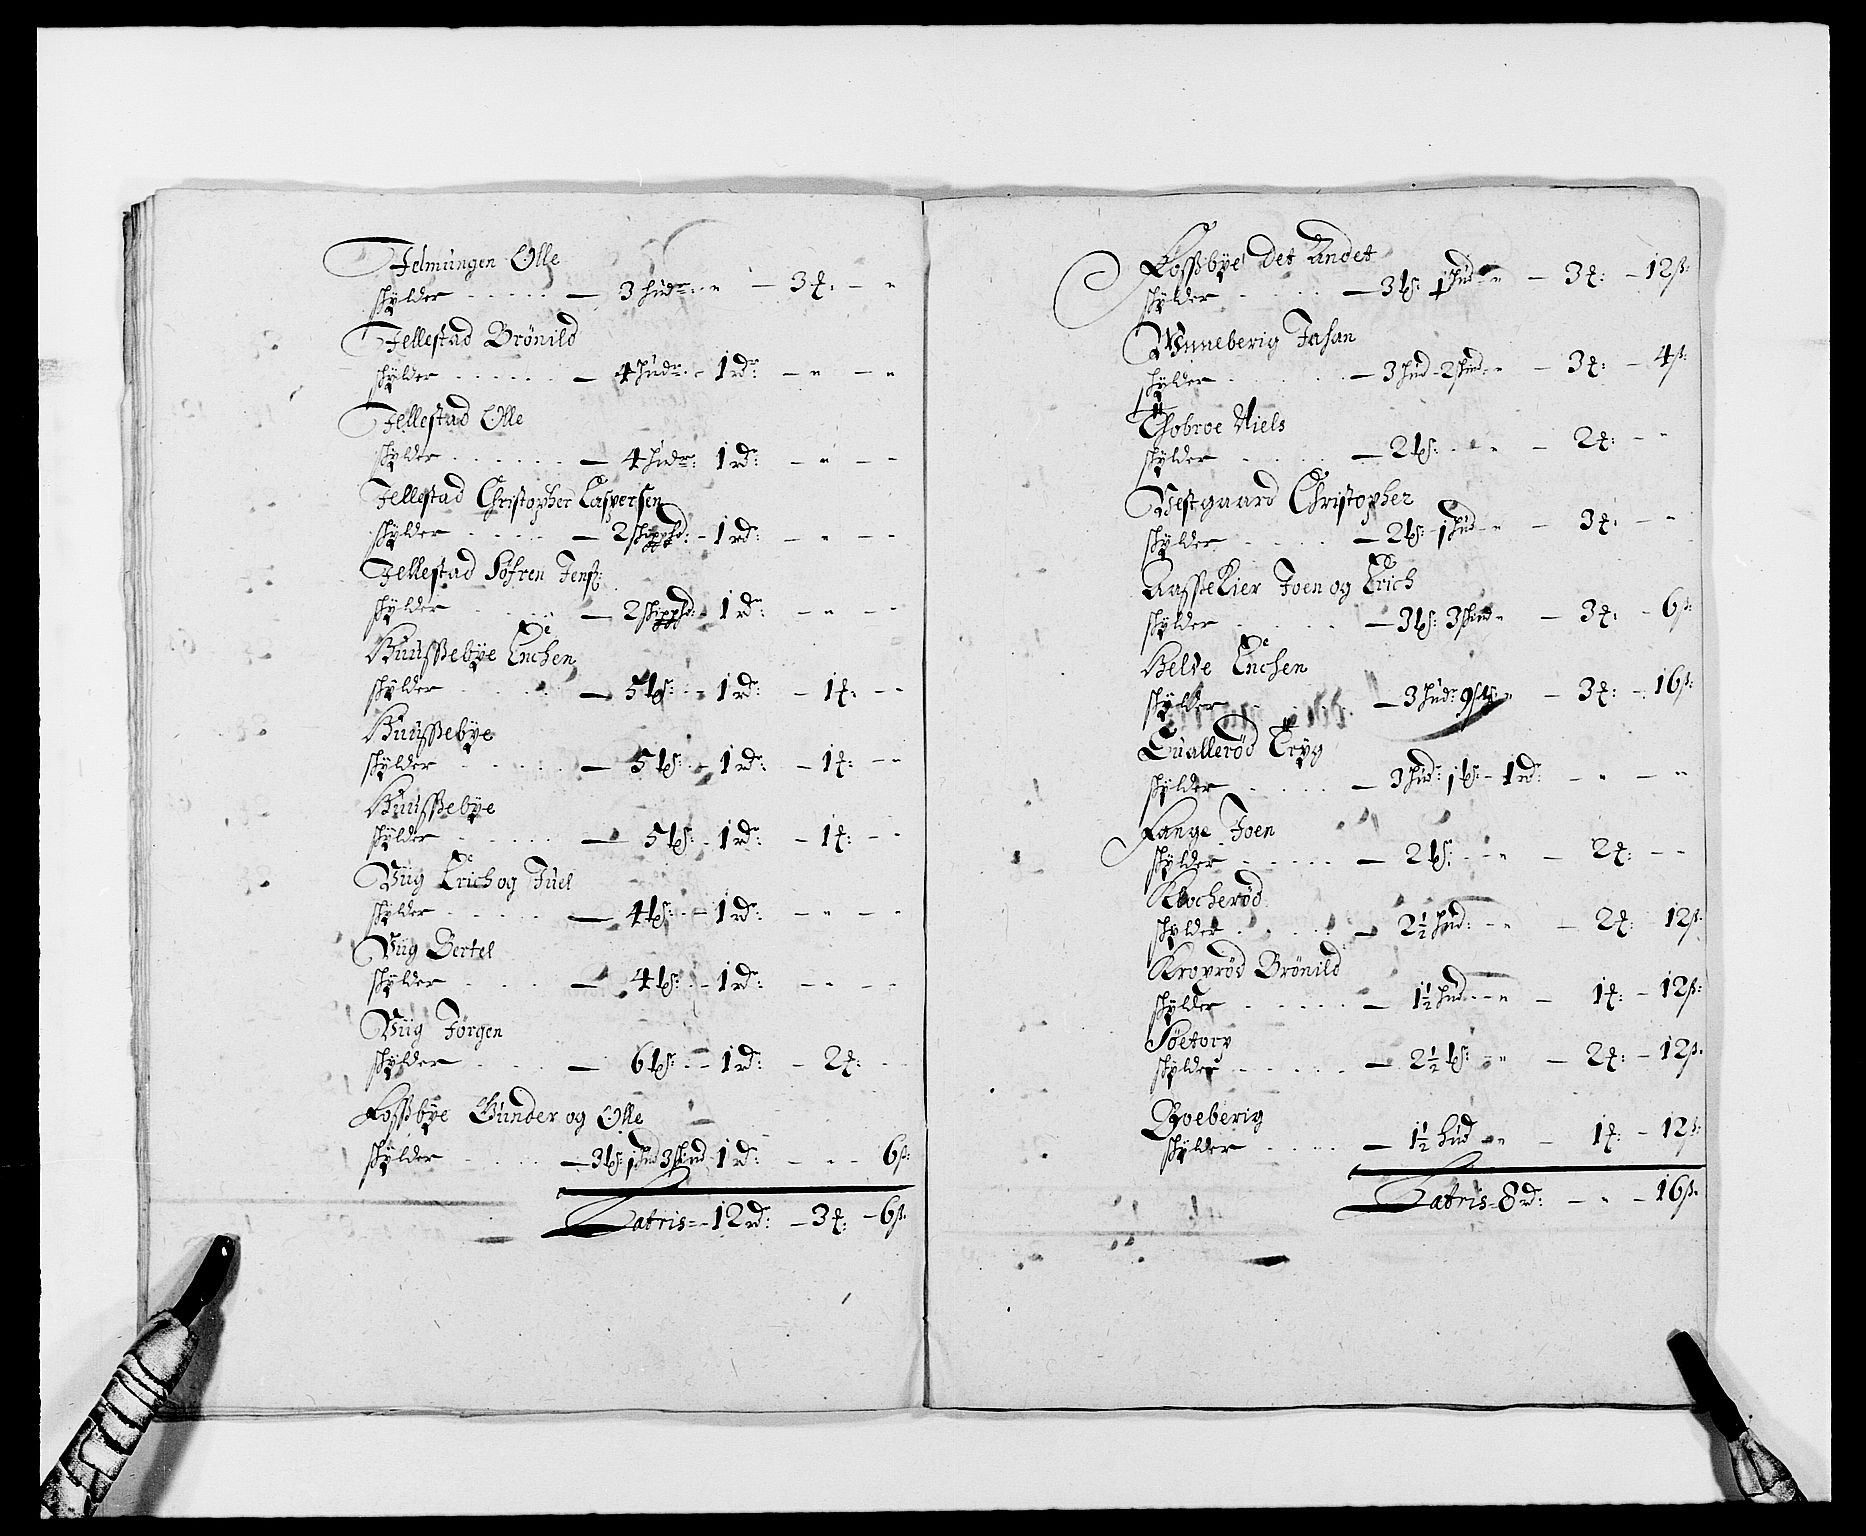 Jelmungen Olle
skylder - - - - - — 3 hudr: - " — 3 ꝥ: — "
Jellestad Brönild
skylder - - - - - — 4 hudr: - 1 rdr: — " — "
Jellestad Olle
skylder - - - - - — 4 hudr: 1 rdr: — " — -
Jellestad Christopher Caspersen
skylder - - - - — 2 skippd: - 1 rdr: — " — -
Jellestad Söfren Jenß:
skylder - - - - — 2 skippd: - 1 rdr: — " — -
Huusßebye Enchen
skylder - - - - — 5 lß: - 1 rdr: — 1 ꝥ: - -
Huusßebye
skylder - - - - — 5 lß: - 1 rdr: — 1 ꝥ: - -
Huusßebye
skylder - - - - — 5 lß: - 1 rdr: — 1 ꝥ: - -
Viig Erich og Juel
skylder - - - - — 4 lß: - 1 rdr: — " — -
Viig Bertel
skylder - - - - — 4 lß: - 1 rdr: — - — -
Viig Jörgen
skylder - - - - — 6 lß: - 1 rdr: — 2 ꝥ: - -
Foßbye Gunder og Olle
skylder - - - - — 3 lß: 1 hud 3 skind 1 rdr: — - - 6 ß:
Latris — 12 rdr: — 3 ꝥ: — 6 ß:
Foßbye det Andet
skylder - - - - — 3 lß: 1 hud - " — 3 ꝥ: — 12 ß:
Wnneberig Johan
skylder - - - - — 3 hud - 2 skind - " — 3 ꝥ: — 4 ß:
Thobroe Niels
skylder - - - - — 2 lß: - - " — 2 ꝥ: — "
Vestgaard Christopher
skylder - - - - — 2 lß: 1 hud - " — 3 ꝥ: — "
Aasßekier Joen og Erich
skylder - - - - — 3 lß: 3 skind - " — 3 ꝥ: — 6 ß:
Helve Enchen
skylder - - - - — 3 hudr " — 3 ꝥ: — 16 ß:
Quallerød Tryg
skylder - - - - — 3 hudr: 1 lß - 1 rdr: — " — "
Lange Joen
skylder - - - - - — 2 lß: - - " — 2 ꝥ: — -
Klocherød
skylder - - - - — 2½ hud: - " — 2 ꝥ: 12 ß:
Kroprød Brönild
skylder - - - - - — 1½ hud - - " — 1 ꝥ: — 12 ß:
Söetorp
skylder - - - - - — 2½ lß: - " — 2 ꝥ: — 12 ß:
Boeberig
skylder - - - - — 1½ hud - " — 1 ꝥ: — 12 ß:
Latris - 8 rdr: — " — 16 ß: